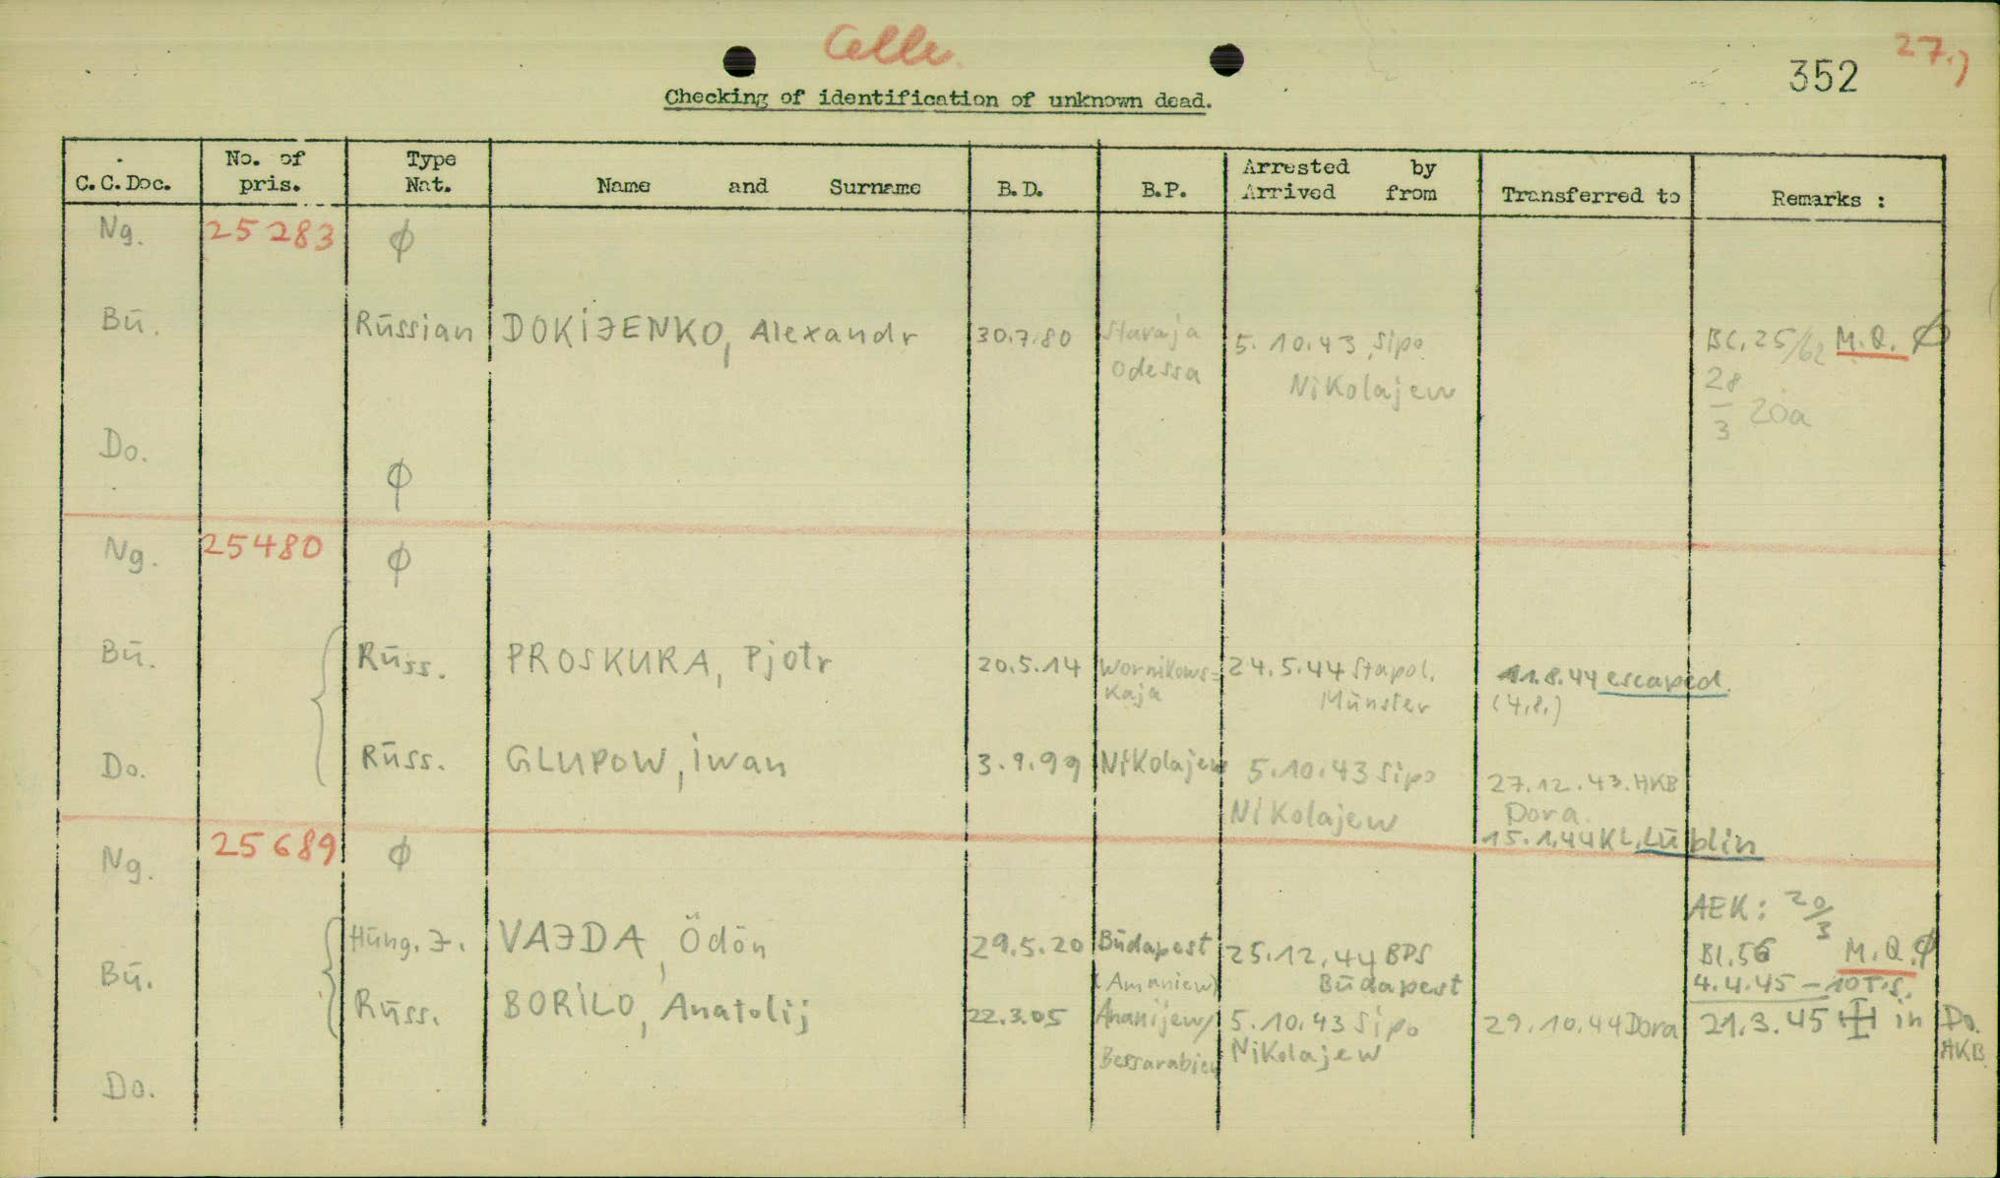 Celle.
27.)
352
Checking of identification of unknown dead.
C.C.Doc. No. of pris. Type Nat. Name and Surname B.D. B.P. Arrested by Arrived from Transferred to Remarks :
Ng. 25283 ϕ
Bü. Rüssian DOKIJENKO, Alexandr 30.7.80 Staraja 5.10.43 Sipo BC. 25/62 M.Q. ϕ
Odessa Nikolajew 28
3 20a
Do.
ϕ
Ng. 25480 ϕ
Bü. Rüss. PROSKURA, Pjotr 20.5.14 Wornikows= 24.5.44 Stapol. 11.8.44 escaped.
kaja Münster (4.8.)
Do. Rüss. GLUPOW, iwan 3.9.99 Nikolajew 5.10.43 Sipo 27.12.43.HKB
Nikolajew Dora.
15.1.44 KL. Lüblin
Ng. 25689 ϕ
AEK: 20/3
Hüng. J. VAJDA, Ödön 29.5.20 Büdapest 25.12.44 BPS Bl.56 M.Q. ϕ
Bü. (Amaniew) Büdapest 4.4.45 – 10T.S.
Rüss. BORILO, Anatolij 22.3.05 Ananijew/ 5.10.43 Sipo 29.10.44 Dora 21.3.45 in Do.
Bessarabien Nikolajew HKB
Do.